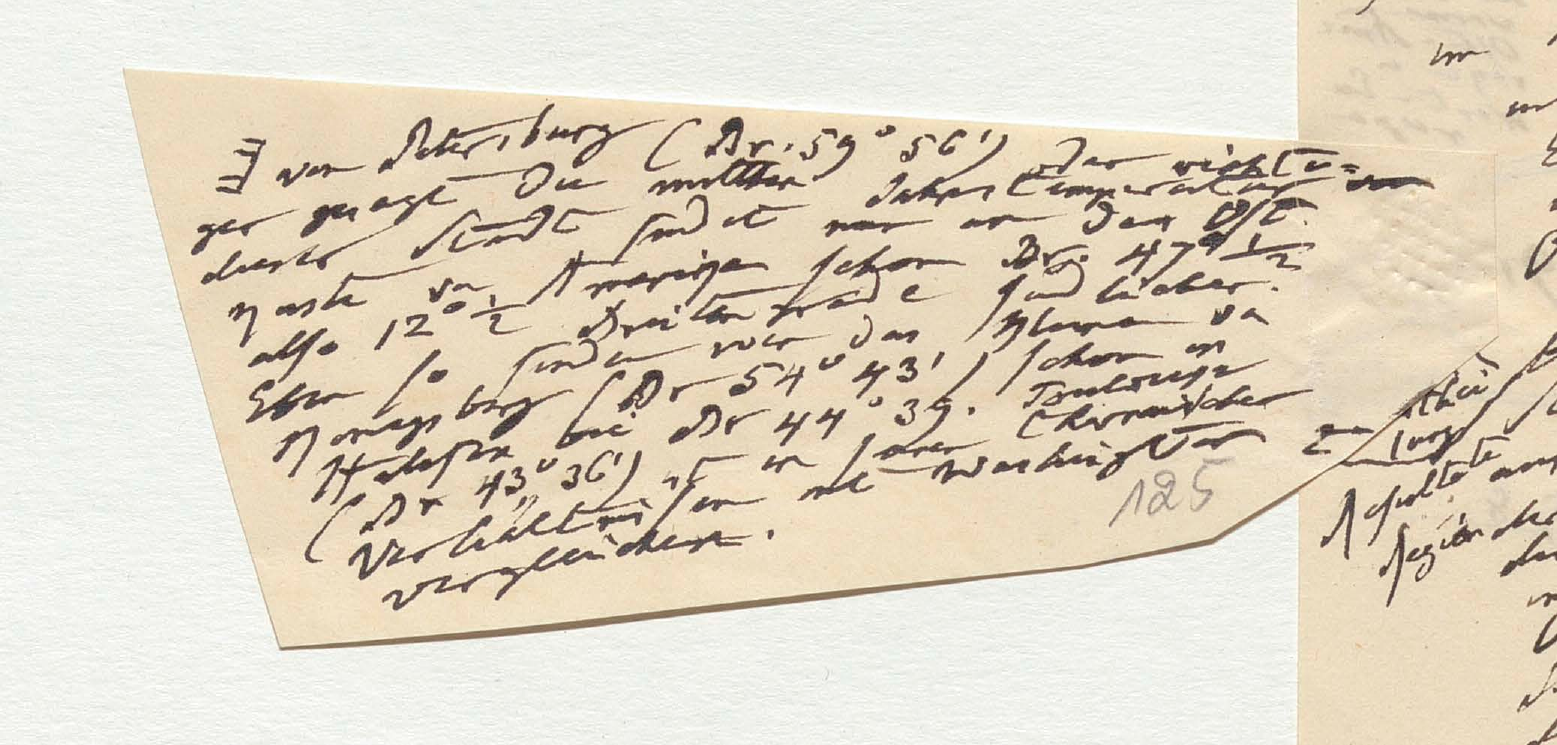 von Petersburg (Br. 59° 56') oder richti=
ger gesagt die mittlere Jahrestemperatur
dieser Stadt findet man an der Ost
küste von Amerika schon Br. 47° 1/2
also 12° 1/2 Breitengrade südlicher.
Eben so finden wir das Klima von
Königsberg (Br 54° 43') schon in
Halifax bei Br 44° 39. Toulouse
(Br 43° 36') ist in seinen thermischen
Verhältnissen mit Washington
vergleichen.
125
im
zu
Resultate
Region